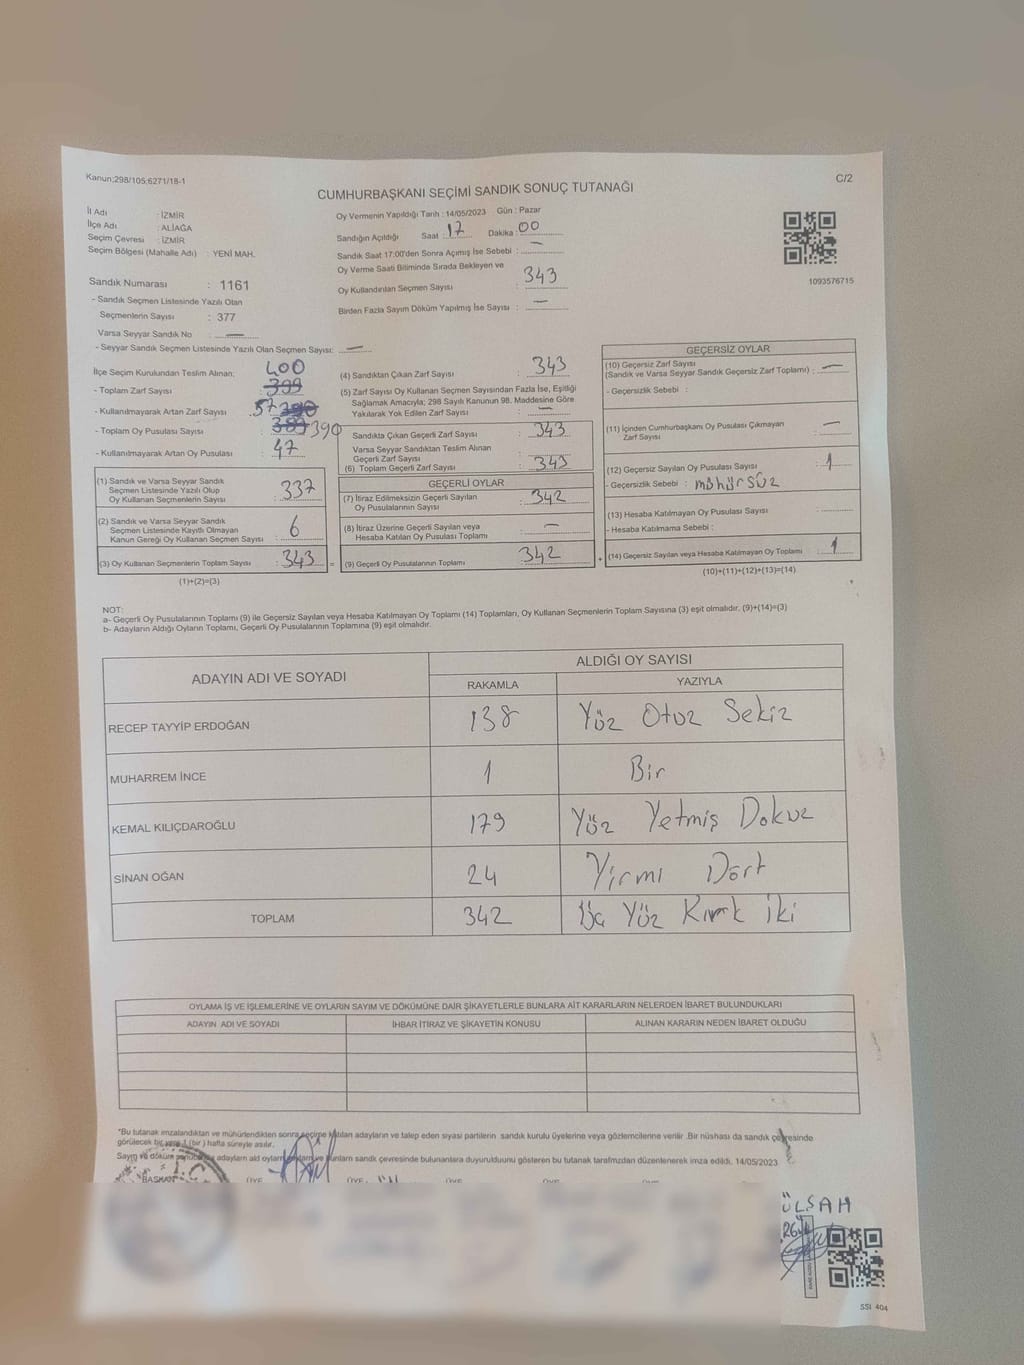 Kanun:298/105;6271/18-1
C/2
CUMHURBAŞKANI SEÇİMİ SANDIK SONUÇ TUTANAĞI
İl Adı : İZMİR
İlçe Adı : ALİAĞA
Seçim Çevresi : İZMİR
Seçim Bölgesi (Mahalle Adı) : YENİ MAH.
Sandık Numarası : 1161
- Sandık Seçmen Listesinde Yazılı Olan
Seçmenlerin Sayısı : 377
Varsa Seyyar Sandık No : —
- Seyyar Sandık Seçmen Listesinde Yazılı Olan Seçmen Sayısı: —
Oy Vermenin Yapıldığı Tarih : 14/05/2023 Gün : Pazar
Sandığın Açıldığı Saat : 17 Dakika : 00
Sandık Saat 17:00'den Sonra Açımış İse Sebebi : —
Oy Verme Saati Bitiminde Sırada Bekleyen ve
Oy Kullandırılan Seçmen Sayısı : 343
Birden Fazla Sayım Döküm Yapılmış İse Sayısı : —
1093576715
İlçe Seçim Kurulundan Teslim Alınan: 400
- Toplam Zarf Sayısı 399
- Kullanılmayarak Artan Zarf Sayısı : 57
- Toplam Oy Pusulası Sayısı : 390
- Kullanılmayarak Artan Oy Pusulası : 47
(1) Sandık ve Varsa Seyyar Sandık
Seçmen Listesinde Yazılı Olup
Oy Kullanan Seçmenlerin Sayısı : 337
(2) Sandık ve Varsa Seyyar Sandık
Seçmen Listesinde Kayıtlı Olmayan
Kanun Gereği Oy Kullanan Seçmen Sayısı : 6
(3) Oy Kullanan Seçmenlerin Toplam Sayısı : 343
(1)+(2)=(3)
(4) Sandıktan Çıkan Zarf Sayısı : 343
(5) Zarf Sayısı Oy Kullanan Seçmen Sayısından Fazla İse, Eşitliği
Sağlamak Amacıyla; 298 Sayılı Kanunun 98. Maddesine Göre
Yakılarak Yok Edilen Zarf Sayısı : —
Sandıkta Çıkan Geçerli Zarf Sayısı : 343
Varsa Seyyar Sandıktan Teslim Alınan
Geçerli Zarf Sayısı
(6) Toplam Geçerli Zarf Sayısı : 343
GEÇERLİ OYLAR
(7) İtiraz Edilmeksizin Geçerli Sayılan
Oy Pusulalarının Sayısı : 342
(8) İtiraz Üzerine Geçerli Sayılan veya
Hesaba Katılan Oy Pusulası Toplamı : —
(9) Geçerli Oy Pusulalarının Toplamı : 342
GEÇERSİZ OYLAR
(10) Geçersiz Zarf Sayısı
(Sandık ve Varsa Seyyar Sandık Geçersiz Zarf Toplamı) : —
- Geçersizlik Sebebi :
(11) İçinden Cumhurbaşkanı Oy Pusulası Çıkmayan
Zarf Sayısı : —
(12) Geçersiz Sayılan Oy Pusulası Sayısı : 1
- Geçersizlik Sebebi : mühürsüz
(13) Hesaba Katılmayan Oy Pusulası Sayısı :
- Hesaba Katılmama Sebebi :
(14) Geçersiz Sayılan veya Hesaba Katılmayan Oy Toplamı : 1
(10)+(11)+(12)+(13)=(14)
NOT:
a- Geçerli Oy Pusulalarının Toplamı (9) ile Geçersiz Sayılan veya Hesaba Katılmayan Oy Toplamı (14) Toplamları, Oy Kullanan Seçmenlerin Toplam Sayısına (3) eşit olmalıdır. (9)+(14)=(3)
b- Adayların Aldığı Oyların Toplamı, Geçerli Oy Pusulalarının Toplamına (9) eşit olmalıdır.
ADAYIN ADI VE SOYADI ALDIĞI OY SAYISI
RAKAMLA YAZIYLA
RECEP TAYYİP ERDOĞAN 138 Yüz Otuz Sekiz
MUHARREM İNCE 1 Bir
KEMAL KILIÇDAROĞLU 179 Yüz Yetmiş Dokuz
SİNAN OĞAN 24 Yirmi Dört
TOPLAM 342 Üç Yüz Kırk İki
OYLAMA İŞ VE İŞLEMLERİNE VE OYLARIN SAYIM VE DÖKÜMÜNE DAİR ŞİKAYETLERLE BUNLARA AİT KARARLARIN NELERDEN İBARET BULUNDUKLARI
ADAYIN ADI VE SOYADI İHBAR İTİRAZ VE ŞİKAYETİN KONUSU ALINAN KARARIN NEDEN İBARET OLDUĞU
*Bu tutanak imzalandıktan ve mühürlendikten sonra seçime katılan adayların ve talep eden siyasi partilerin sandık kurulu üyelerine veya gözlemcilerine verilir. Bir nüshası da sandık çevresinde
görülecek bir yere 1 (bir) hafta süreyle asılır.
Sayım ve döküm sonucunda adayların ald oyların ve bunların sandık çevresinde bulunanlara duyurulduunu gösteren bu tutanak tarafımzdan düzenlenerek imza edildi. 14/05/2023
BAŞKAN ÜYE ÜYE ÜYE ÜYE ÜYE
T.C.
ÜLŞAH
SSI 404